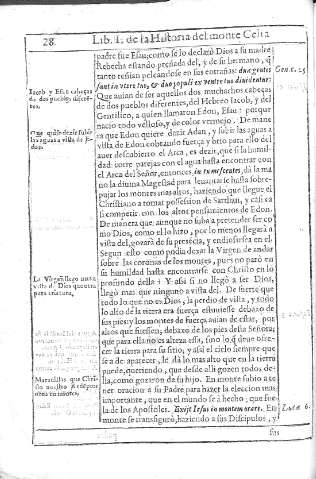 28 Lib. I. de la Historia del monte Celia
padre fue Esau; como se lo declarò Dios a su madre
Rebecha estando preñada del, y de su hermano, q̃
tanto reñian peleandose en sus entrañas: duæ gentes
Gen. c. 25
sunt in utero tuo, & duo populi ex ventre tuo diuidentur:
Iacob y Esaú cabeças
de dos pueblos
Que auian de ser aquellos dos muchachos cabeças
de dos pueblos diferentes, del Hebreo Iacob, y del
Gentilico, a quien llamaron Edon, Esau: porque
nacio todo velloso, y de color vermejo. De mane
Que quiere dezir subir
las aguas a vista de E-
don.
ra que Edon quiere dezir Adan, y subir las aguas a
vista de Edon cobrando fuerça y brio para ello del
auer descubierto el Arca, es dezir, que si la humil-
dad: corre parejas con el agua hasta encontrar con
el Arca del Señor, entonces, in tu me scrates, dà la ma
no la diuina Magestad para leuantarle hasta sobre-
pujar los montes mas altos, haziendo que llegue el
Christiano a tomar possession de Sarthan, y casi a
competir con los altos pensamientos de Edon.
De manera que aunque no suba a pretender ser co
mo Dios, como el lo hizo, por lo menos llegarà a
vista del, gozarà de su presencia, y endiosarsea en el.
Segun esto como podia dexar la Virgen de andar
sobre las coronas de los montes, pues no parò en
su humildad hasta encontrarse con Christo en lo
La Virgen llego mas a
vista de Dios que otra
pura criatura.
profundo della? Y assi si no llegò a ser Dios,
llegò mas que ninguno a vista del. De suerte que
todo lo que no es Dios, la perdio de vista, y todo
lo alto de la tierra era fuerça estuuiesse debaxo de
sus pies: y los montes de fuerça auian de estar, por
altos que fuessen, debaxo de los pies desta Señora;
que para ella no es alteza essa, sino lo q̃ deue ofre-
cer la tierra para su sitio, y assi el cielo siempre que
se a de aparecer, le dà lo mas alto que en la tierra
puede, queriendo, que desde alli gozen todos de-
lla, como gozaron de su hijo. En monte subio a te-
Marauillas que Chris
to nuestro Redemptor
obra en montes.
ner oracion a su Padre para hazer la eleccion mas
importante, que en el mundo se à hecho; que fue
la de los Apostoles. Exijt Iesus in montem orare. En
Lucæ 6.
monte se transfigurò, haziendo a sus Discipulos, y